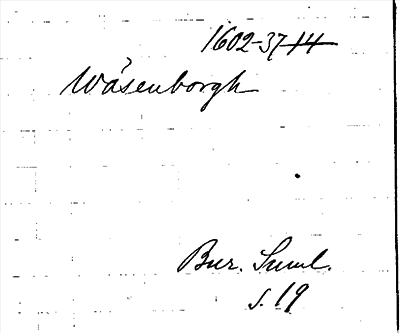 1602-37 14
Wåsenborgh
Bur. Suml.
s. 19